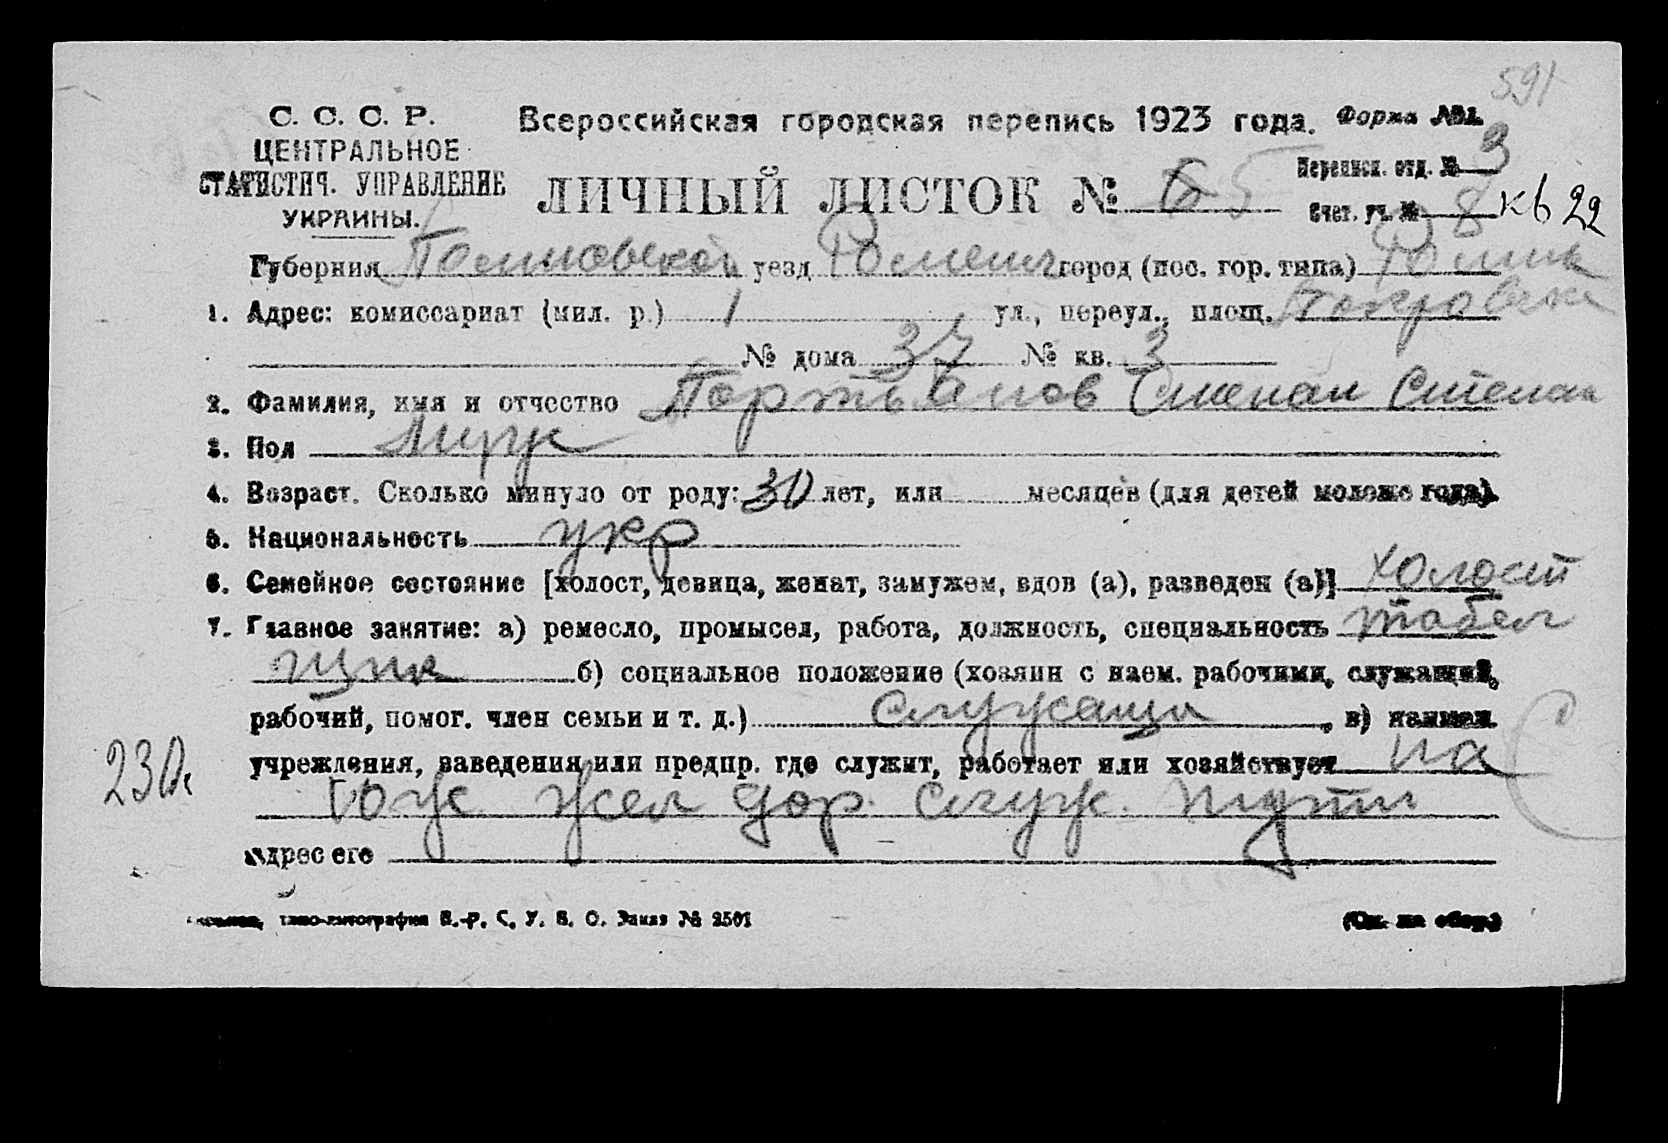 591
С. С. С. Р.
ЦЕНТРАЛЬНОЕ
СТАТИСТИЧ. УПРАВЛЕНИЕ
УКРАИНЫ.
Всероссийская городская перепись 1923 года. Форма №1.
Перепися. отд. № 3
ЛИЧНЫЙ ЛИСТОК № 65
Счет. уч. № 8 кв 22
Губерния уезд город (пос. гор. типа)
1. Адрес: комиссариат (мил. р.) 1 ул., переул., площ.
№ дома 37 № кв. 3
2. Фамилия, имя и отчество Степан
3. Пол Муж
4. Возраст. Сколько минуло от роду: 30 лет, или месяцев (для детей моложе года).
5. Национальность укр
6. Семейное состояние [холост, девица, женат, замужем, вдов (а), разведен (а)] холост
7. Главное занятие: а) ремесло, промысел, работа, должность, специальность табель
щик б) социальное положение (хозяин с наем. рабочими, служащий,
рабочий, помог. член семьи и т. д.) , в) наимен.
учреждения, заведения или предпр. где служит, работает или хозяйствует на
жел дор. служ. пути
Адрес его
230
типо-литография В.-Р. С. У. В. О. Заказ № 2501
(См. на обор.)